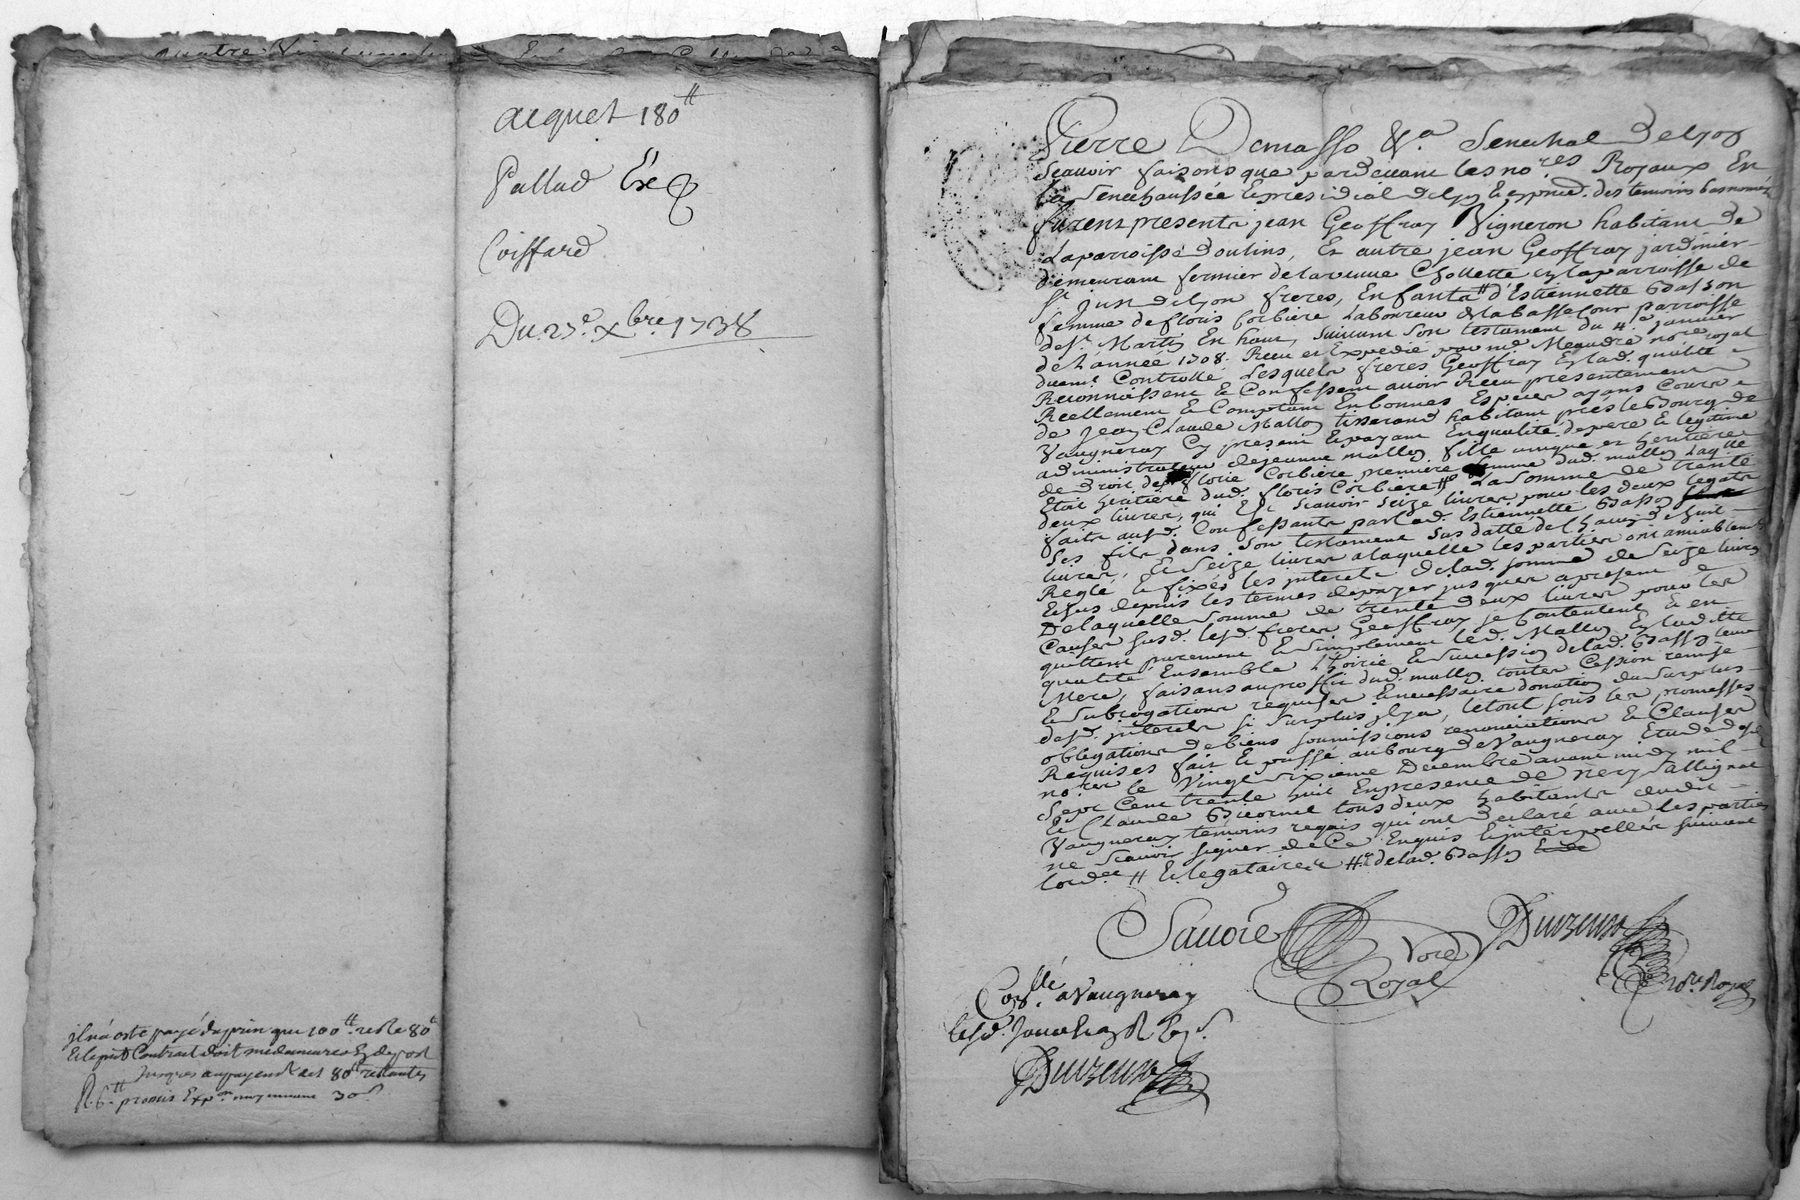 acquet 180#
Pallud Ex
Coiffard
Du 27e Xbre 1738
il n'a esté payé du prix que 100# reste 80#
Et le pnt Contract doit me demeurer En depost
Jusques au payemt des 80# restantes
R. 6# promis Expon moyennant 30s
Pierre Damasso &a Senechal De Lyon
Scavoir faisons que pardevant les nores Royaux En
La Senechaussée Et presidial de Lyon Et en presence des temoins bas nommés
furent presents jean Geoffray Vigneron habitant de
La parroisse d'oulins, Et autre jean Geoffray jardinier
demeurant fermier de la veuve Chollette en la parroisse de
St just de Lyon freres, Enfants d'Estiennette Basson
femme de floris Corbiere Laboureur de la basse cour parroisse
de St Martin En haut, suivant son testament du 4e janvier
de L'année 1708. Receu et Expedié par me Meaudre nore royal
duemt Controllé, Lesquels freres Geoffray Esd. qualité
Reconnoissent Et Confessent avoir Receu presentement
Reellement Et Comptant En bonnes Especes ayans Cours
de Jean Claude Mallon tisserand habitant près le Bourg de
Vaugneray Cy present Et payant En qualité de pere Et legitime
administrateur de jeanne mallon fille unique et heritiere
de droit de florie Corbiere premiere femme dud. mallon Laqlle
Etoit heritiere dud. floris Corbiere, La Somme de trente
deux livres, qui Est scavoir seize livres pour les deux legats
faits ausd. Confessants par lad. Estiennette Basson
Ses fils dans Son testament Sus datté de Chacun huit
livres, Et Seize livres a laquelle les parties ont amiablemt
Reglé Et fixés les interets de lad. somme de Seize livres
Echus depuis les termes de payer jusques a present
De laquelle Somme de trente deux livres pour les
Causes susd. lesd. freres Geoffray se Contentent Et en
quittent purement Et Simplement led. Mallon En ladte
qualité Ensemble L'hoirie Et Succession de lad. Basson leur
Mere, faisans au proffit dud. mallon toutes Cession remise
Et Subrogations requises Et necessaire donation du Surplus
desd. interets si Surplus il y a, le tout sous les promesses
obligations de biens soumissions renonciations Et Clauses
Requises fait Et passé au bourg de Vaugneray Etude d'un
nores le Vingt Sixieme Decembre avant midy mil
Sept Cent trente huit En presence de
Et Claude tous deux habitants dudit
Vaugneray temoins requis qui ont declaré avec les parties
ne Scavoir signer de Ce Enquis Et interpellés suivant
lordce # Et legataires # de lad. Basson
Sauore
nore Royal
nore Royal
Conllé a Vaugneray